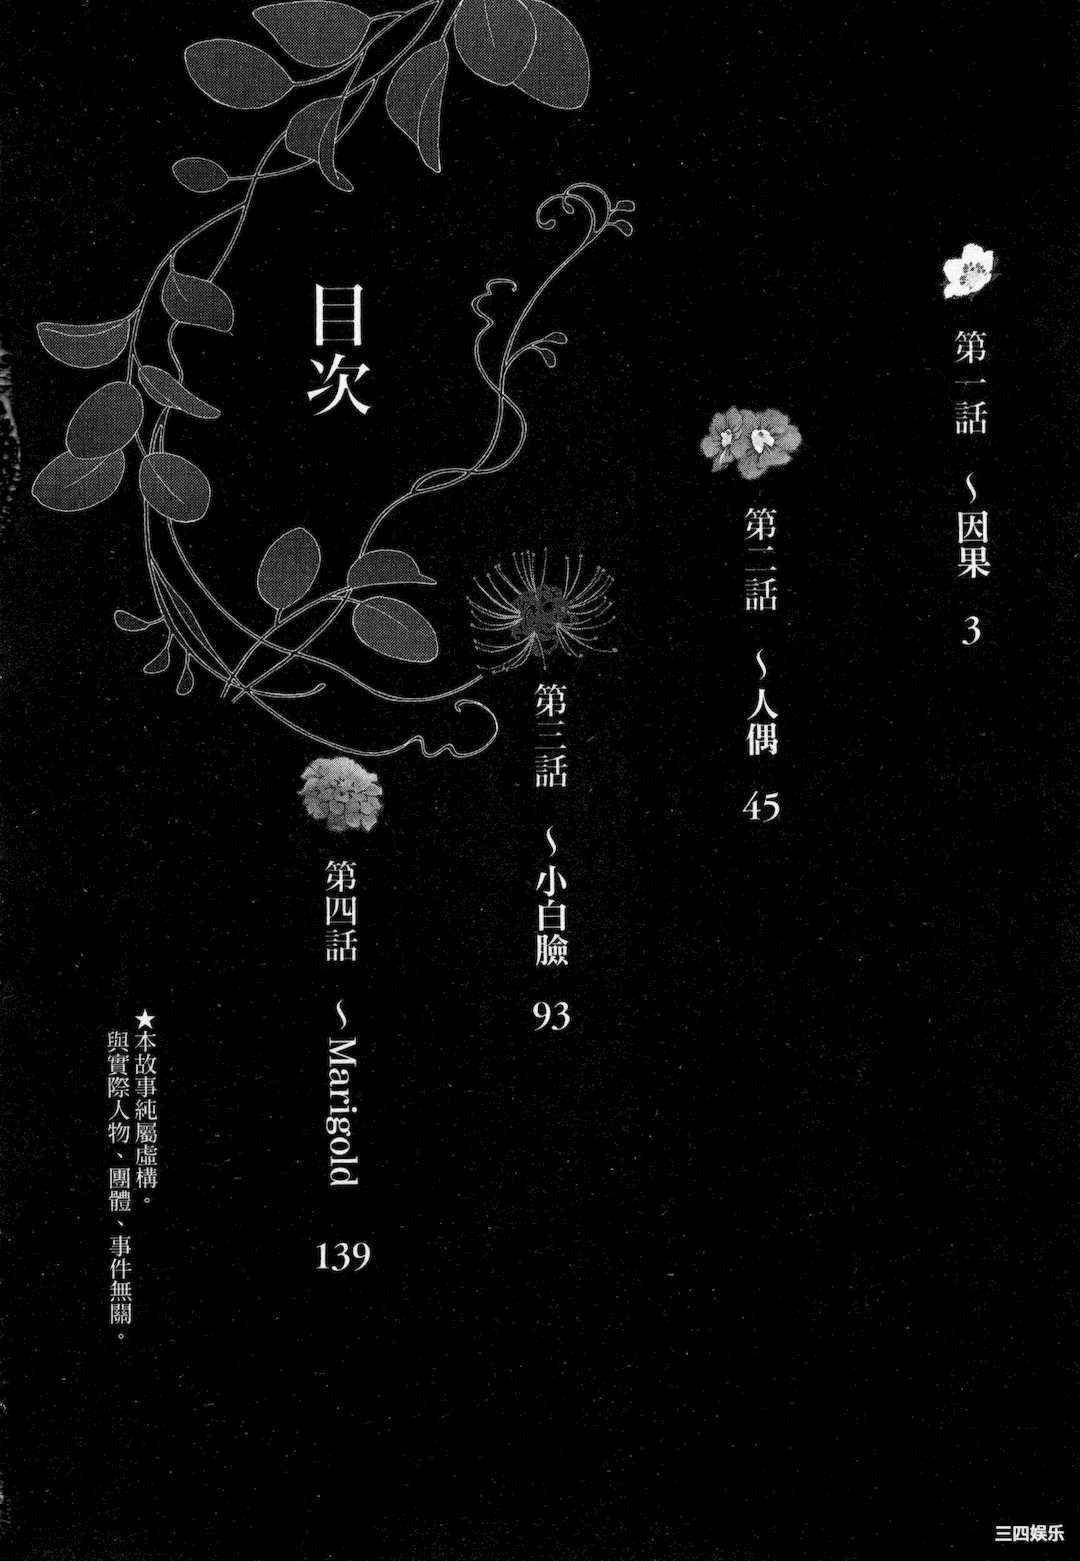 目次
第一話 ～因果 3
第二話 ～人偶 45
第三話 ～小白臉 93
第四話 ～Marigold 139
★本故事純屬虛構。
與實際人物、團體、事件無關。
三四娱乐